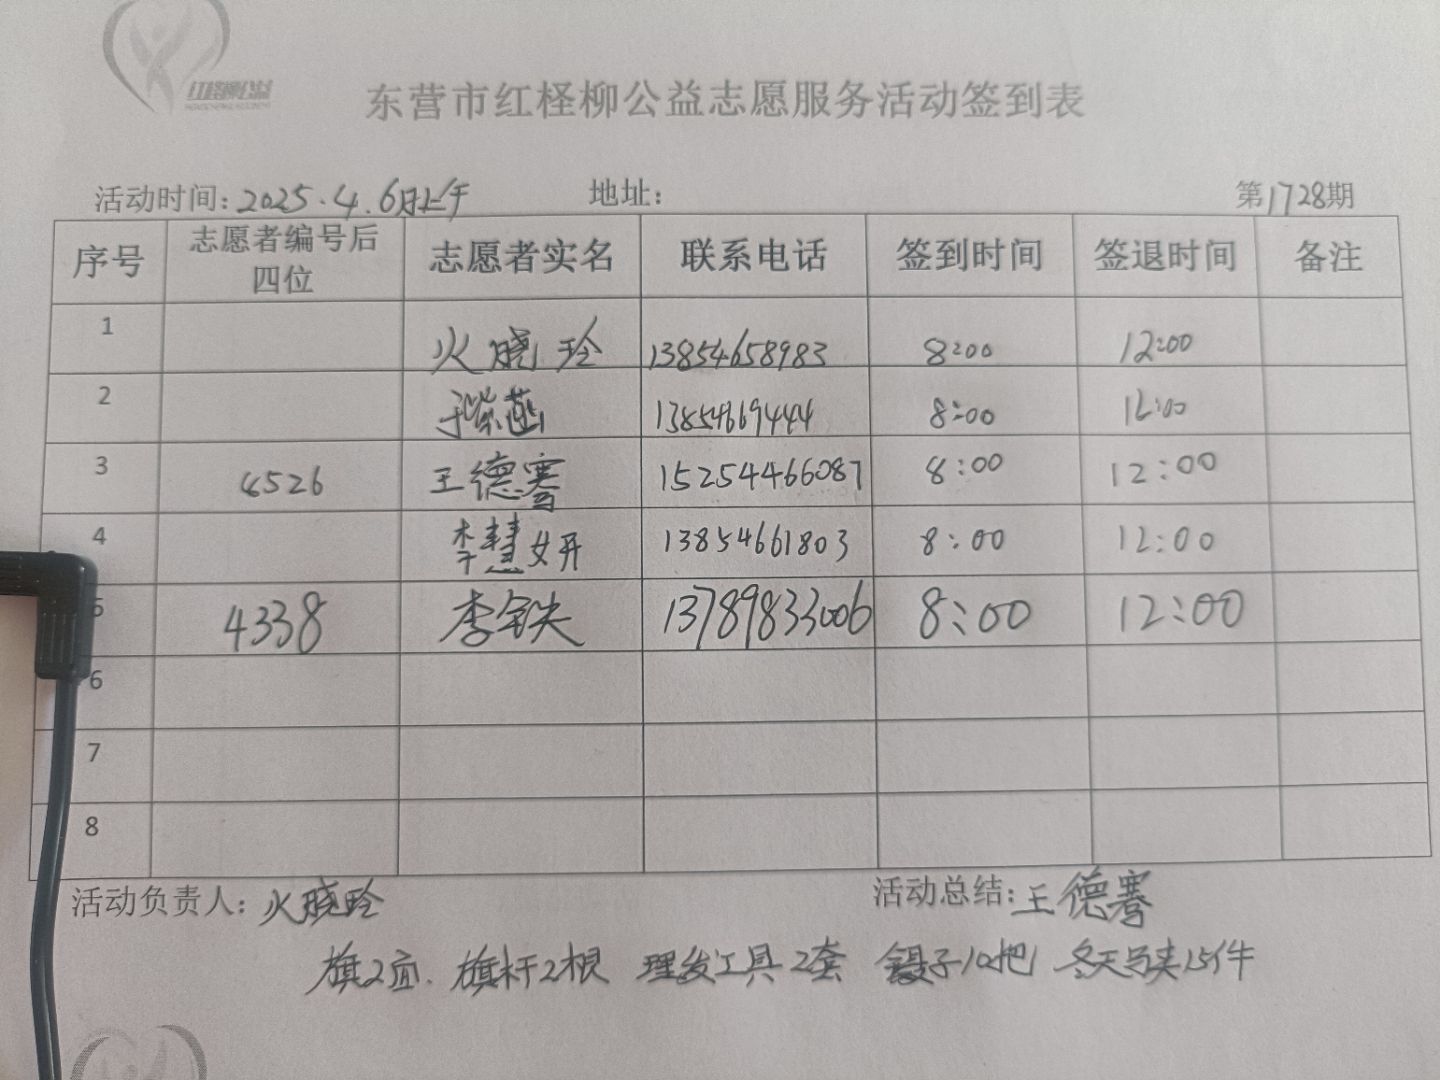 红柽柳公益
东营市红柽柳公益志愿服务活动签到表
活动时间：2025.4.6日上午 地址： 第1728期
序号 志愿者编号后四位 志愿者实名 联系电话 签到时间 签退时间 备注
1 火晓玲 13854658983 8:00 12:00
2 于紫菡 13854669444 8:00 12:00
3 4526 王德骞 15254466087 8:00 12:00
4 李慧妍 13854661803 8:00 12:00
5 4338 李铁 13789833006 8:00 12:00
6
7
8
活动负责人：火晓玲 活动总结：王德骞
旗2面. 旗杆2根 理发工具2套 镊子10把 冬天马夹15件